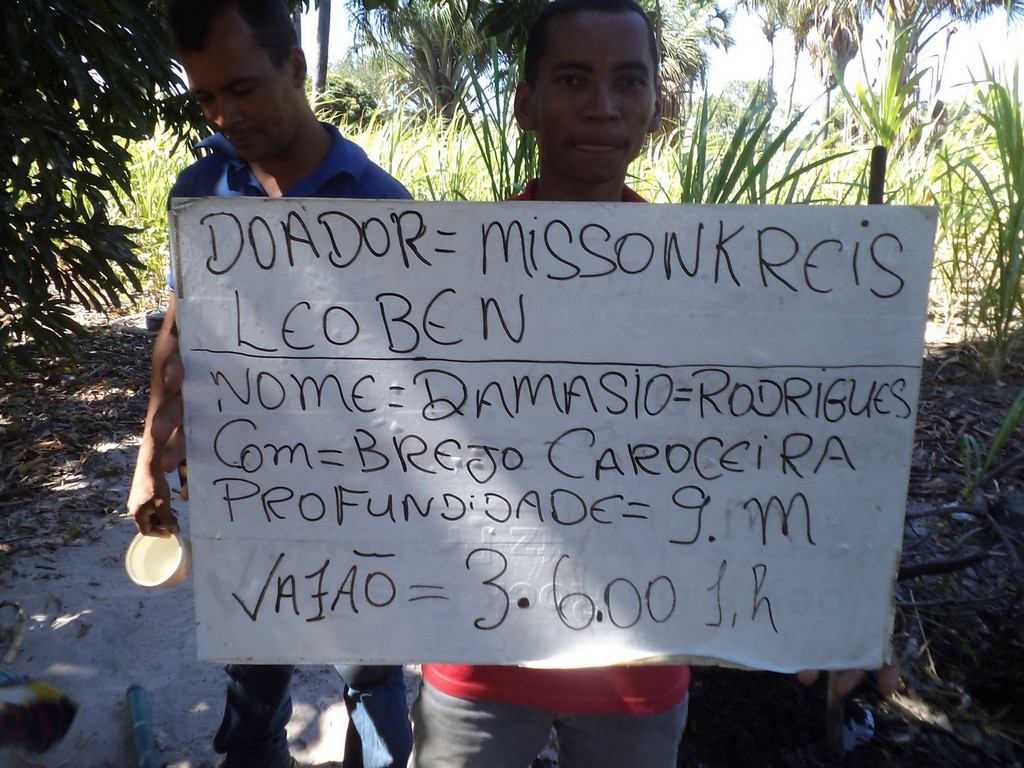 DOADOR= MISSONKREIS
LEOBEN
NOME= DAMASIO=RODRIGUES
Com= BREJO CAROCEIRA
PROFUNDIDADE= 9. m
VAJÃO= 3.6.00 l,h